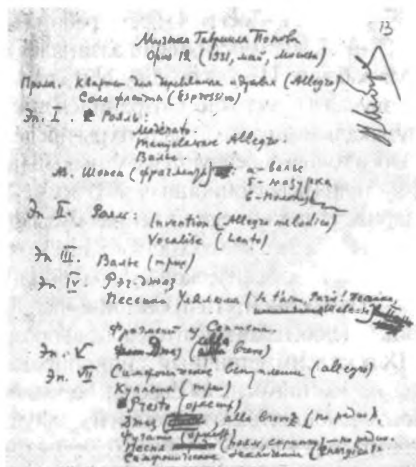 13
Музыка Гавриила Попова
Opus 12 (1931, май, Москва)
Пролог. Квартет для деревянных духовых (Allegro)
Соло флейты (Espressivo)
Эп. I. Рояль:
Moderato.
Танцевальное Allegro
Вальс.
М. Шопен (фрагменты): а - вальс
б - мазурка
в - полонез
Эп II. Рояль: Invention (Allegro melodico)
Vocalise (Lento)
Эп III. Вальс (трио)
Эп IV Рэг-джаз
Песенка (Je t'aime, Paris!
Фрагмент из
Эп. V. Джаз (alla breve)
Эп. VII Симфоническое вступление (allegro)
Куплеты (трио)
Presto (оркестр)
Джаз, alla breve (по радио)
(оркестр)
Песня (рояль, сопрано) - по радио.
Симфоническое заключение (Energico)